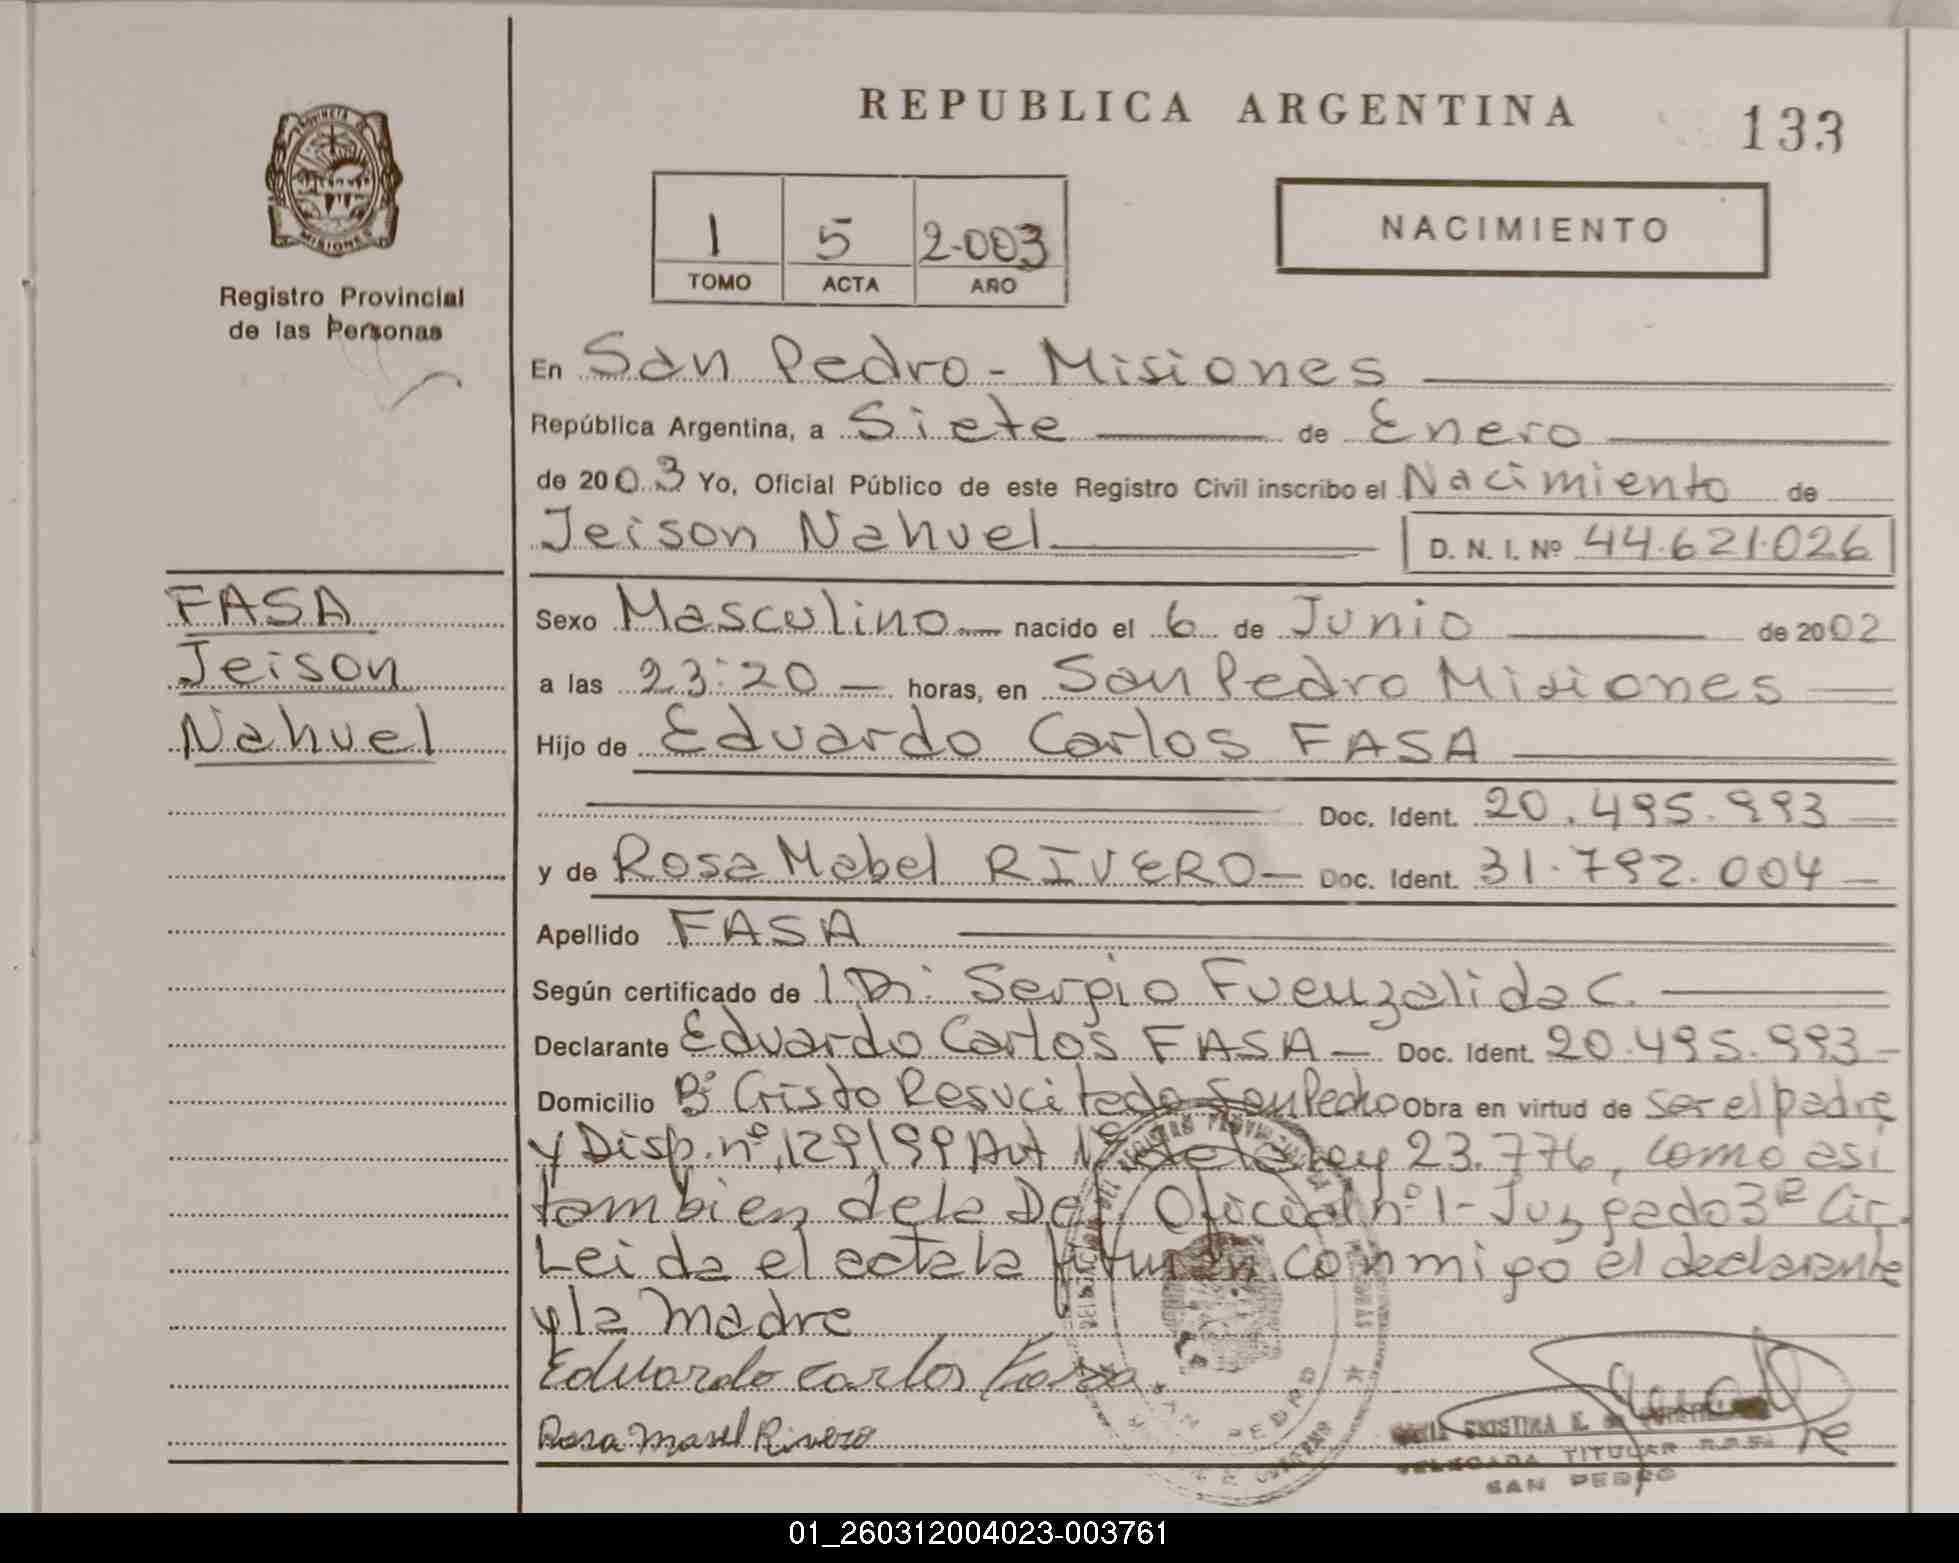 REPUBLICA ARGENTINA
133
PROVINCIA DE
MISIONES
Registro Provincial
de las Personas
1 5 2.003
TOMO ACTA AÑO
NACIMIENTO
En San Pedro - Misiones
República Argentina, a Siete de Enero
de 2003 Yo, Oficial Público de este Registro Civil inscribo el Nacimiento de
Jeison Nahuel D. N. I. Nº 44.621.026
FASA
Jeison
Nahuel
Sexo Masculino nacido el 6 de Junio de 2002
a las 23:20 horas, en San Pedro Misiones
Hijo de Eduardo Carlos FASA
Doc. Ident. 20.495.993
y de Rosa Mabel RIVERO Doc. Ident. 31.792.004
Apellido FASA
Según certificado de Sergio Fuenzalida C.
Declarante Eduardo Carlos FASA Doc. Ident. 20.495.993
Domicilio Bº Cristo Resucitado San Pedro Obra en virtud de ser el padre
y Disp. nº 129/99 Art 1º de la Ley 23.776, como asi
tambien de la Def. Oficial nº 1 - Juzgado 3ª Cir.
Leida el acta la firman conmigo el declarante
y la madre
Eduardo Carlos
Rosa Mavel Rivero
SAN PEDRO
CRISTINA
DELEGADA TITULAR R.P.P.
SAN PEDRO
01_260312004023-003761